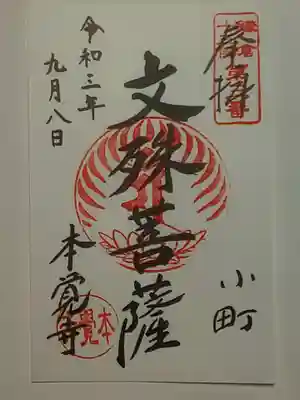 奉拝
小町
文殊菩薩
令和三年
九月八日
本覚寺
本覺